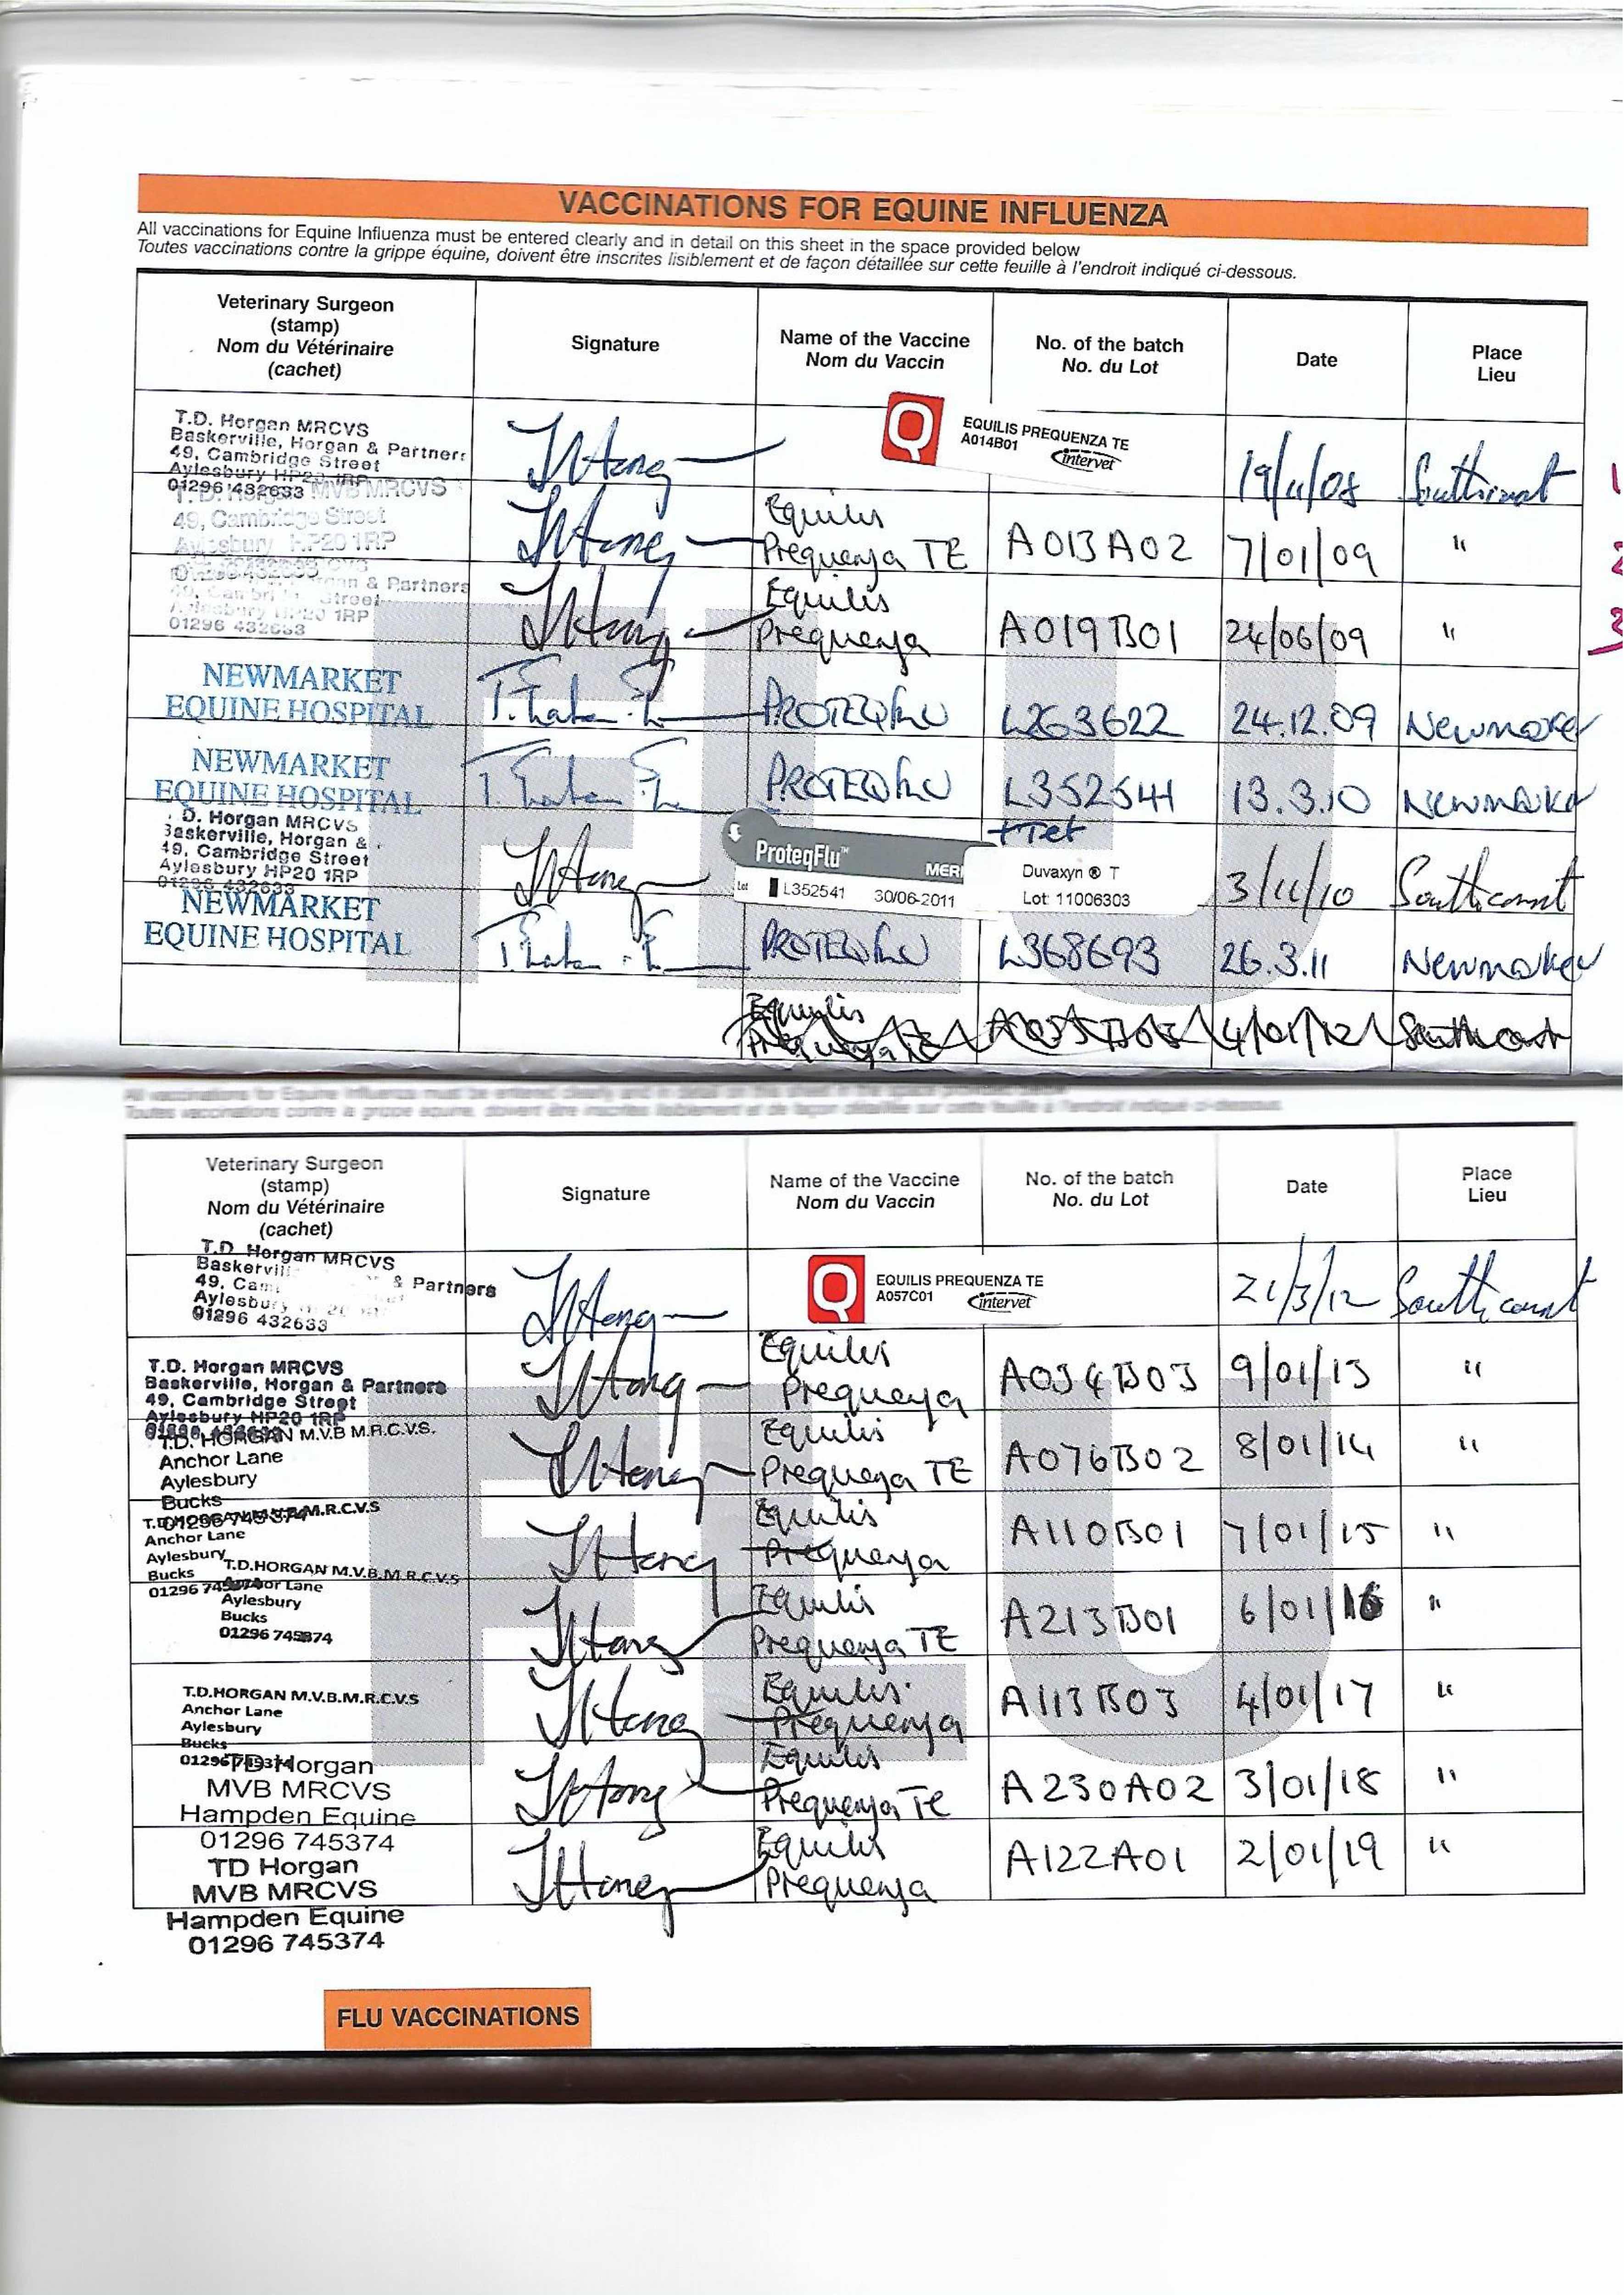 VACCINATIONS FOR EQUINE INFLUENZA
All vaccinations for Equine Influenza must be entered clearly and in detail on this sheet in the space provided below
Toutes vaccinations contre la grippe équine, doivent être inscrites lisiblement et de façon détaillée sur cette feuille à l'endroit indiqué ci-dessous.
Veterinary Surgeon
(stamp)
Nom du Vétérinaire
(cachet)
Signature
Name of the Vaccine
Nom du Vaccin
No. of the batch
No. du Lot
Date
Place
Lieu
T.D. Horgan MRCVS
Baskerville, Horgan & Partners
49, Cambridge Street
Aylesbury HP20 1RP
01296 432633
EQUILIS PREQUENZA TE
A014B01
Intervet
19/11/08
1
MVB MRCVS
49, Cambridge Street
Aylesbury HP20 1RP
Equilis
Prequenza TE
A013A02
7/01/09
"
2
& Partners
Street
1RP
01296 432633
Equilis
Prequenza
A019B01
24/06/09
"
3
NEWMARKET
EQUINE HOSPITAL
PROTEQFLU
L263622
24.12.09
Newmarket
NEWMARKET
EQUINE HOSPITAL
PROTEQFLU
L352541
13.3.10
Newmarket
D. Horgan MRCVS
Baskerville, Horgan &
49, Cambridge Street
Aylesbury HP20 1RP
01296 432633
+Tet
ProteqFlu™
MERI
Lot L352541 30/06-2011
Duvaxyn ® T
Lot: 11006303
3/11/10
Southcourt
NEWMARKET
EQUINE HOSPITAL
PROTEQFLU
L368693
26.3.11
Newmarket
Equilis
Prequenza TE
4/01/12
All vaccinations for Equine Influenza must be entered clearly and in detail on this sheet in the space provided below
Toutes vaccinations contre la grippe équine, doivent être inscrites lisiblement et de façon détaillée sur cette feuille à l'endroit indiqué ci-dessous.
Veterinary Surgeon
(stamp)
Nom du Vétérinaire
(cachet)
Signature
Name of the Vaccine
Nom du Vaccin
No. of the batch
No. du Lot
Date
Place
Lieu
T.D. Horgan MRCVS
& Partners
49,
Aylesbury
01296 432633
EQUILIS PREQUENZA TE
A057C01
Intervet
21/3/12
Southcourt
T.D. Horgan MRCVS
Baskerville, Horgan & Partners
49, Cambridge Street
Aylesbury HP20 1RP
Equilis
Prequenza
A034B03
9/01/13
"
T.D. HORGAN M.V.B M.R.C.V.S.
Anchor Lane
Aylesbury
Bucks
01296 745374
Equilis
Prequenza TE
A076B02
8/01/14
"
T.D.HORGAN M.V.B.M.R.C.V.S
Anchor Lane
Aylesbury
Bucks
01296 745374
Equilis
Prequenza
A110B01
7/01/15
"
T.D.HORGAN M.V.B.M.R.C.V.S
Anchor Lane
Aylesbury
Bucks
01296 745374
Equilis
Prequenza TE
A213B01
6/01/16
"
T.D.HORGAN M.V.B.M.R.C.V.S
Anchor Lane
Aylesbury
Bucks
01296 745374
Equilis
Prequenza
A113B03
4/01/17
"
TD Horgan
MVB MRCVS
Hampden Equine
01296 745374
Equilis
Prequenza TE
A230A02
3/01/18
"
TD Horgan
MVB MRCVS
Hampden Equine
01296 745374
Equilis
Prequenza
A122A01
2/01/19
"
FLU
FLU VACCINATIONS